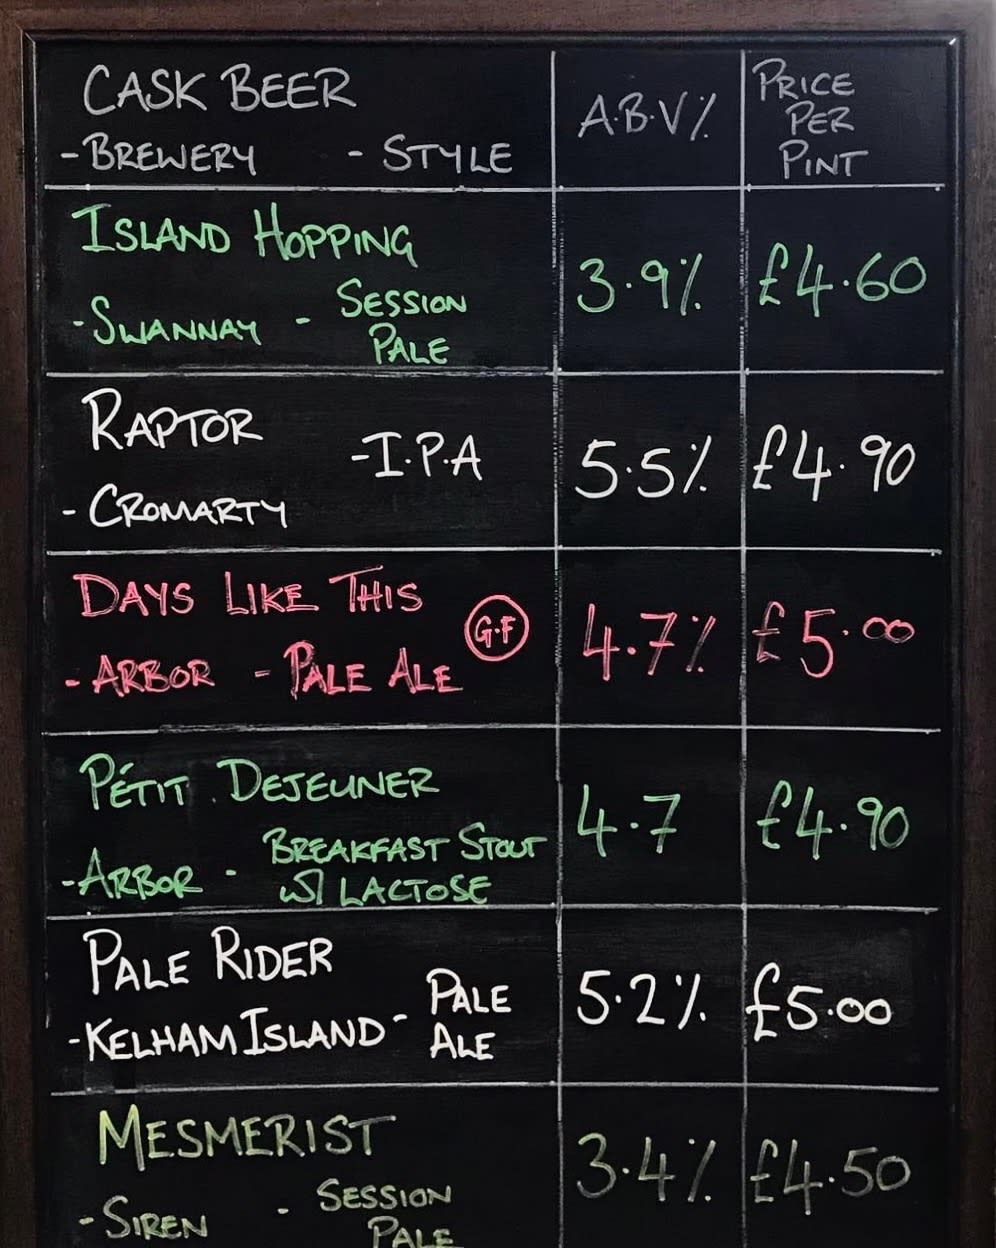 CASK BEER
- BREWERY - STYLE
A.B.V%
PRICE
PER
PINT
ISLAND HOPPING
- SWANNAY - SESSION
PALE
3.9% £4.60
RAPTOR
- I.P.A
- CROMARTY
5.5% £4.90
DAYS LIKE THIS
G.F
- ARBOR - PALE ALE
4.7% £5.00
PÉTIT DEJEUNER
- ARBOR - BREAKFAST STOUT
W/ LACTOSE
4.7 £4.90
PALE RIDER
- KELHAM ISLAND - PALE
ALE
5.2% £5.00
MESMERIST
- SIREN - SESSION
PALE
3.4% £4.50